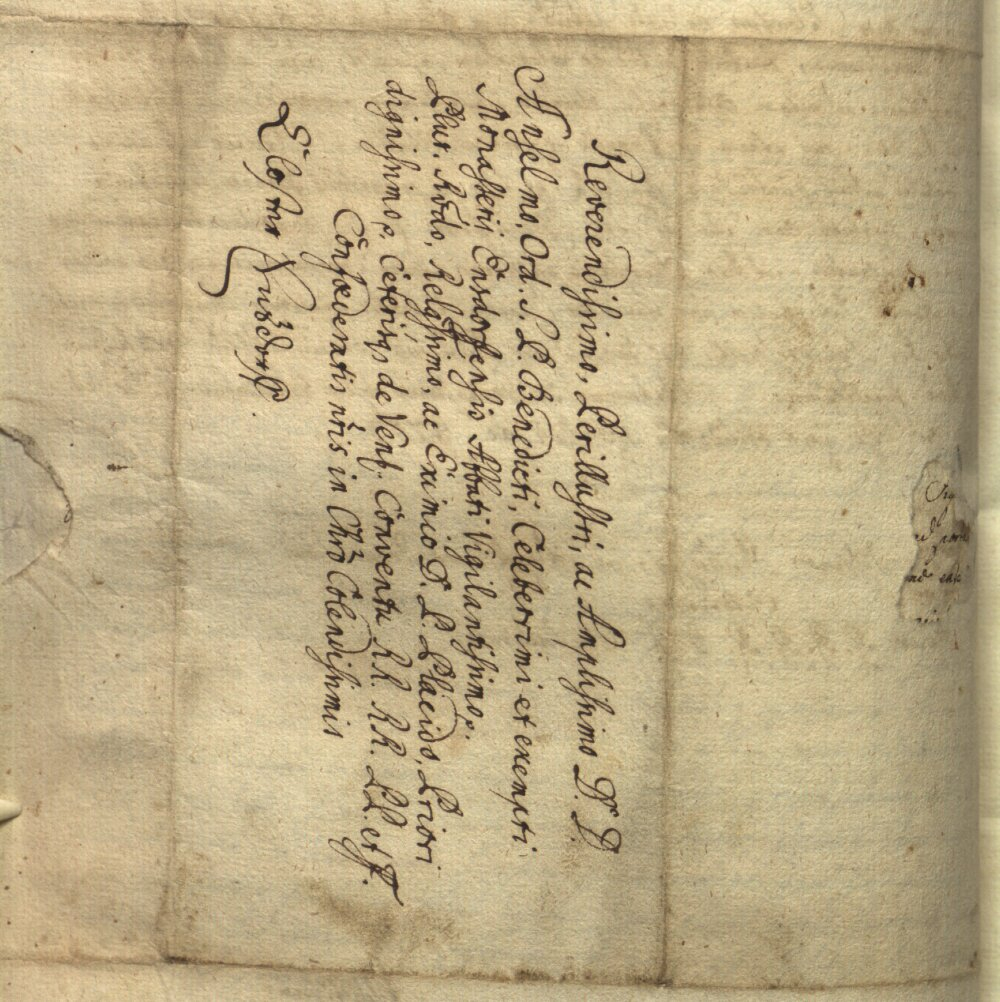 Reverendissimo, Perillustri, ac Amplissimo Dn. D.
Anselmo, Ord. S. P. Benedicti, Celeberrimi et exempti
Monasterii Ensdorfensis Abbati Vigilantissimo,
Plur. Rdo, Relgssimo, ac Eximio D. P. Placido, Priori
dignissimo, Ceterisqs de Venb. Conventu RR. RR. PP. et ff.
Confoederatis nris in Chro Colendissimis
Closter